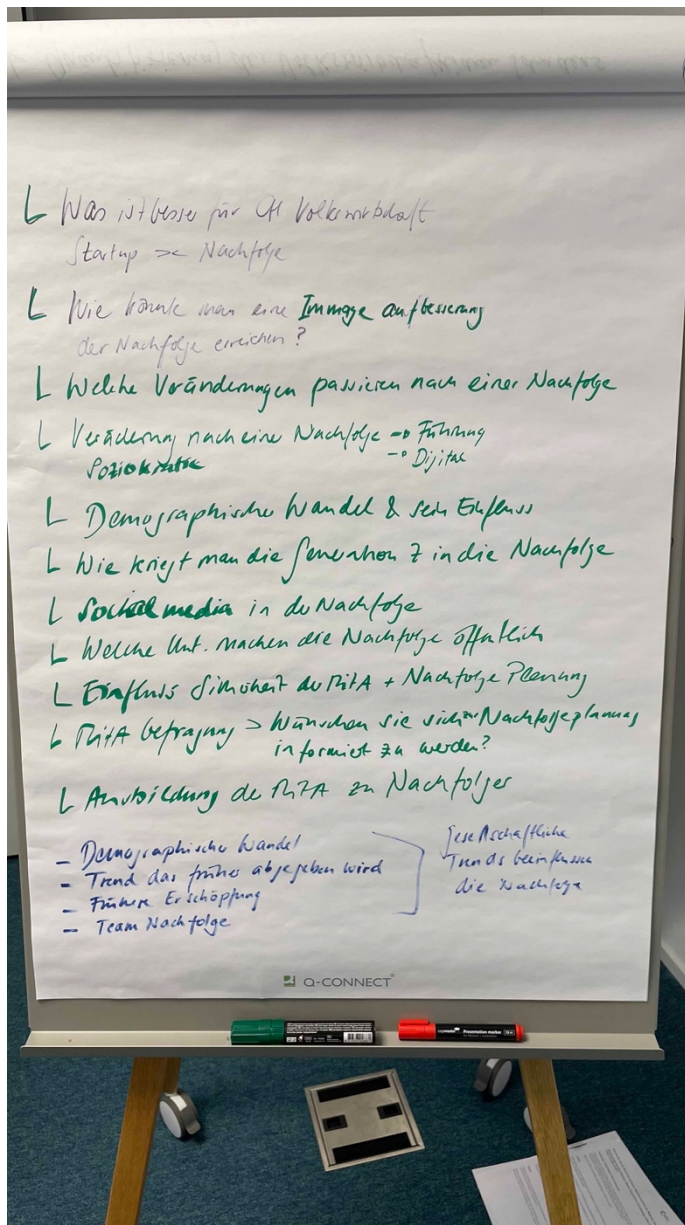 Was ist besser für CH Volkswirtschaft
Startup >< Nachfolge
Wie könnte man eine Immage aufbesserung
der Nachfolge erreichen?
Welche Veränderungen passieren nach einer Nachfolge
Veräderung nach einer Nachfolge → Führung
Soziokratie → Digital
Demographischer Wandel & sein Einfluss
Wie kriegt man die Generation Z in die Nachfolge
Social media in der Nachfolge
Welche Unt. machen die Nachfolge öffentlich
Einfluss Sicherheit der MitA + Nachfolge Planung
MitA befragung > Wünschen sie sich zur Nachfolgeplanung
informiert zu werden?
Ausbildung der MitA zu Nachfolger
- Demographischer Wandel
- Trend das früher abgegeben wird
- Frühere Erschöpfung
- Team Nachfolge
gesellschaftliche
Trends beeinflussen
die Nachfolge
Q-CONNECT
Presentation marker